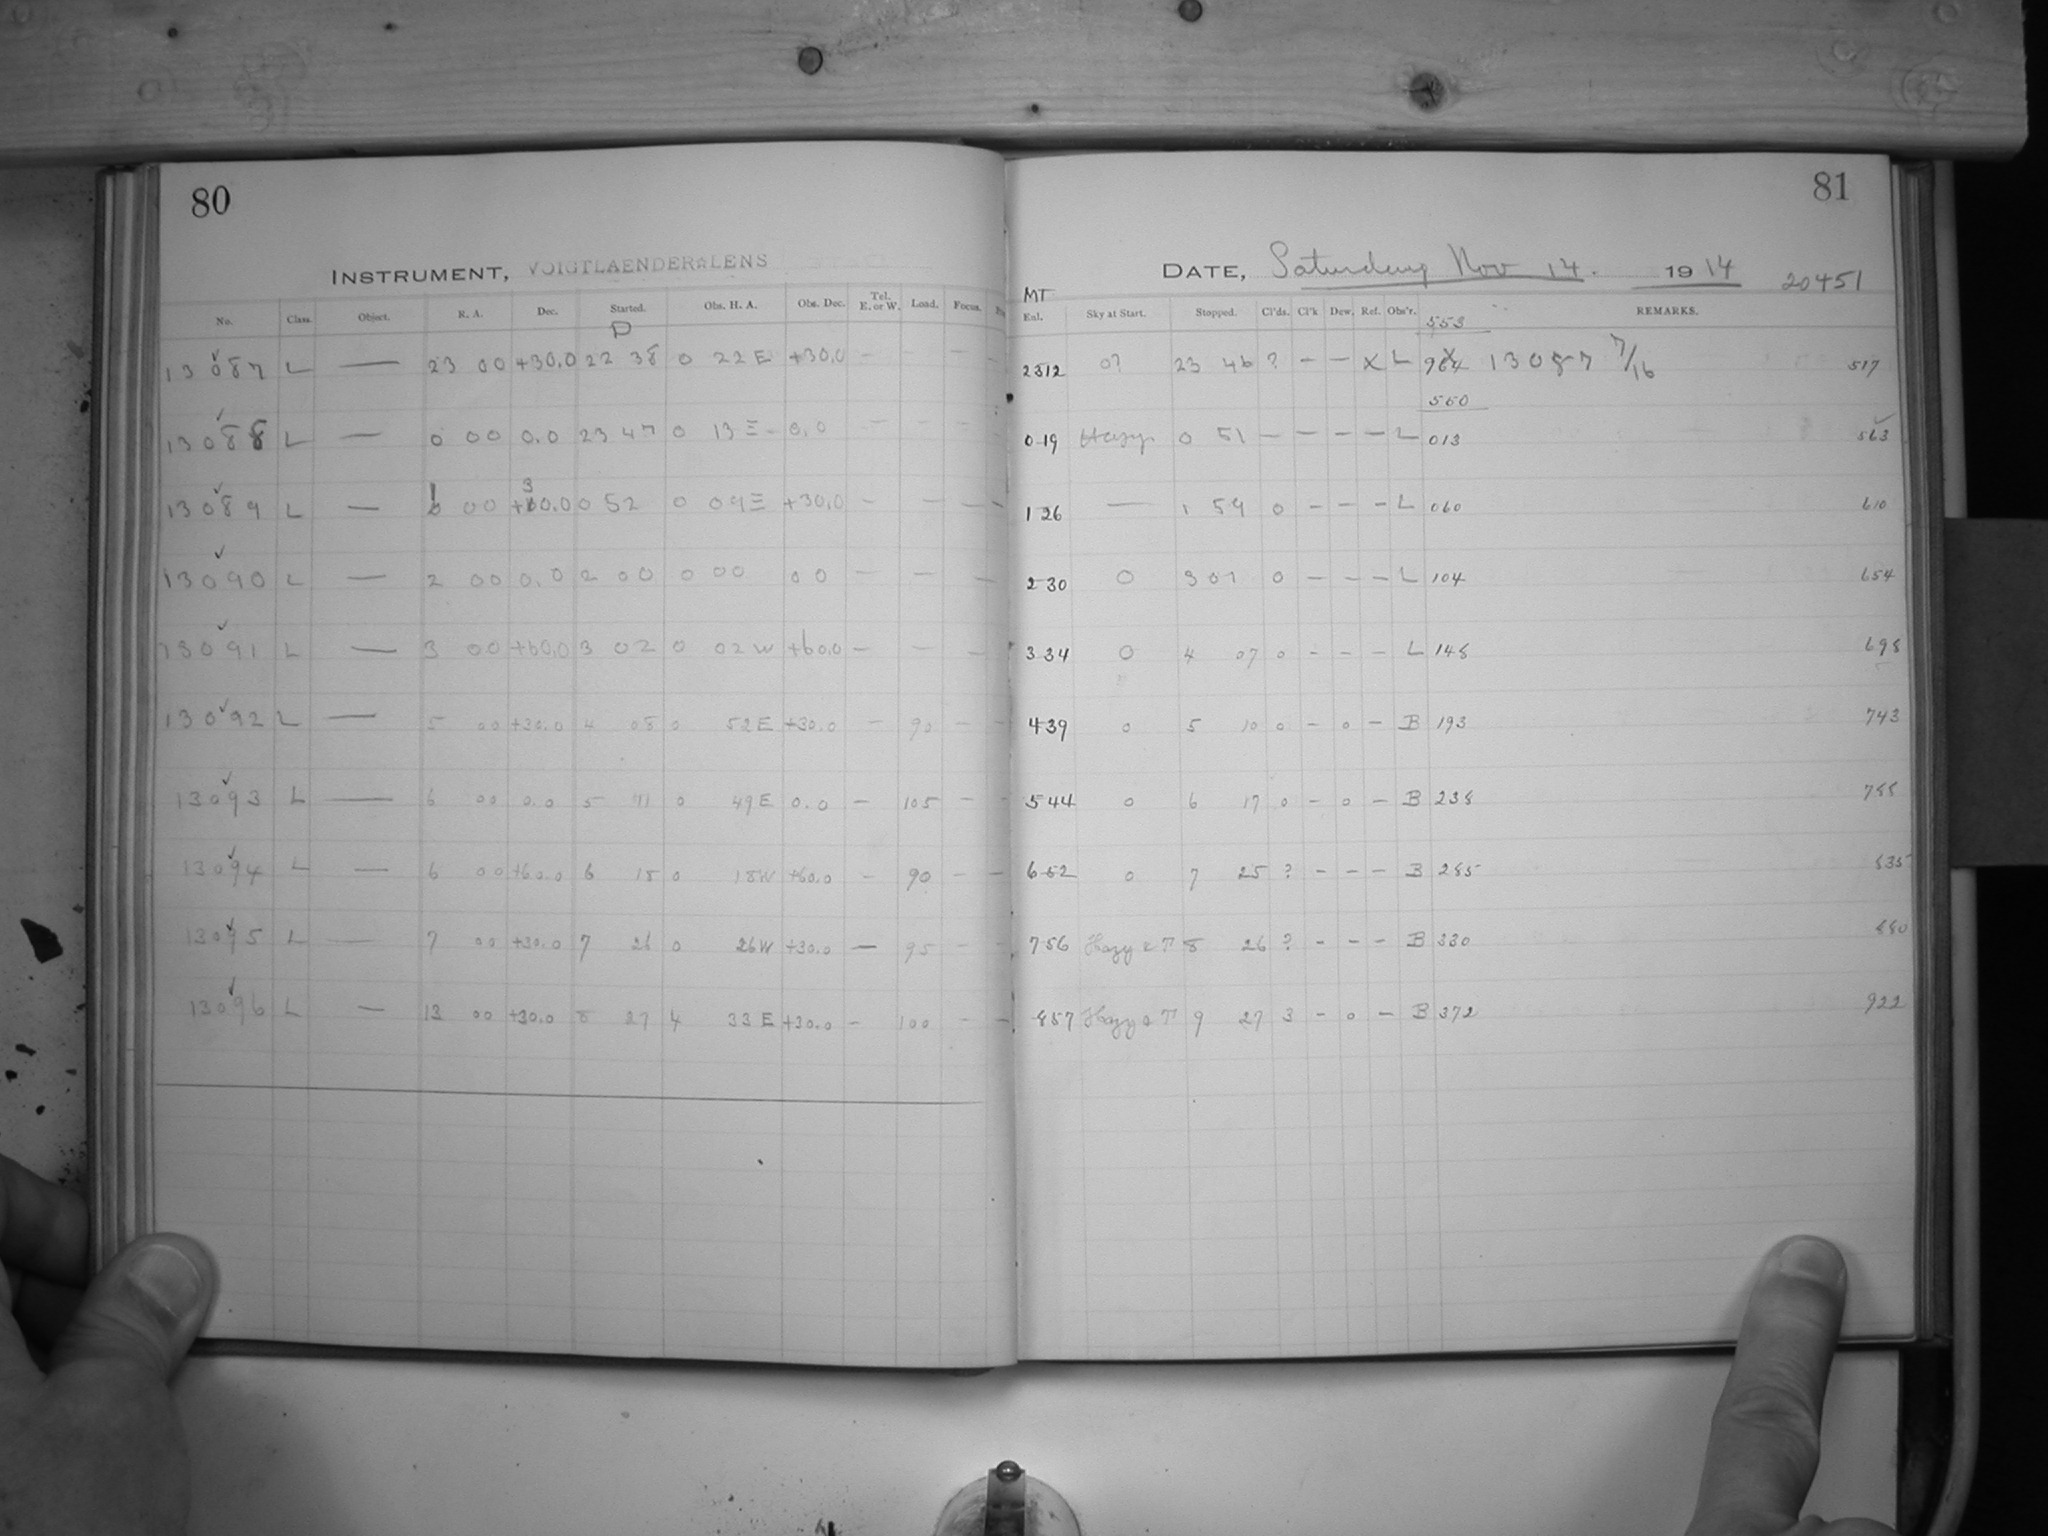 80
INSTRUMENT, VOIGTLAENDER LENS
No. Class. Object. R. A. Dec. Started. Obs. H. A. Obs. Dec. Tel. E. or W. Load. Focus.
P
13087 L — 23 00 +30.0 22 38 0 22 E +30.0 — — —
13088 L — 0 00 0.0 23 47 0 13 E 0.0 — — —
13089 L — 1 00 +30.0 0 52 0 09 E +30.0 — — — —
13090 L — 2 00 0.0 2 00 0 00 0 0 — — —
13091 L — 3 00 +60.0 3 02 0 02 W +60.0 — — —
13092 L — 5 00 +30.0 4 08 0 52 E +30.0 — 90 — —
13093 L — 6 00 0.0 5 11 0 49 E 0.0 — 105 — —
13094 L — 6 00 +60.0 6 18 0 18 W +60.0 — 90 — —
13095 L — 7 00 +30.0 7 26 0 26 W +30.0 — 95 — —
13096 L — 13 00 +30.0 8 27 4 33 E +30.0 — 100 — —
81
DATE, Saturday Nov 14. 1914 20451
MT
Exl. Sky at Start. Stopped. Cl'ds. Cl'k Dew. Ref. Obs'r. REMARKS.
553
2312 0? 23 46 ? — — X L 964 13087 7/16 517
560
0 19 Hazy 0 51 — — — — L 013 563
1 26 — 1 59 0 — — — L 060 610
2 30 0 3 01 0 — — — L 104 654
3 34 0 4 07 0 — — — L 148 698
4 39 0 5 10 0 — 0 — B 193 743
5 44 0 6 17 0 — 0 — B 238 788
6 52 0 7 25 ? — — — B 285 835
7 56 Hazy 8 26 ? — — — B 330 880
8 57 Hazy 9 27 3 — 0 — B 372 922